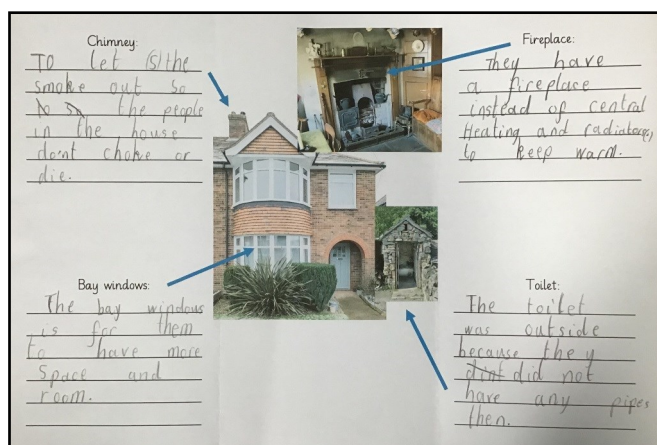 Chimney:
To let (s) the
smoke out so
the people
in the house
don't choke or
die.
Fireplace:
They have
a fireplace
instead of central
Heating and radiators(s)
to keep warm.
Bay windows:
The bay windows
is for them
to have more
space and
room.
Toilet:
The toilet
was outside
because they
didnt did not
have any pipes
then.